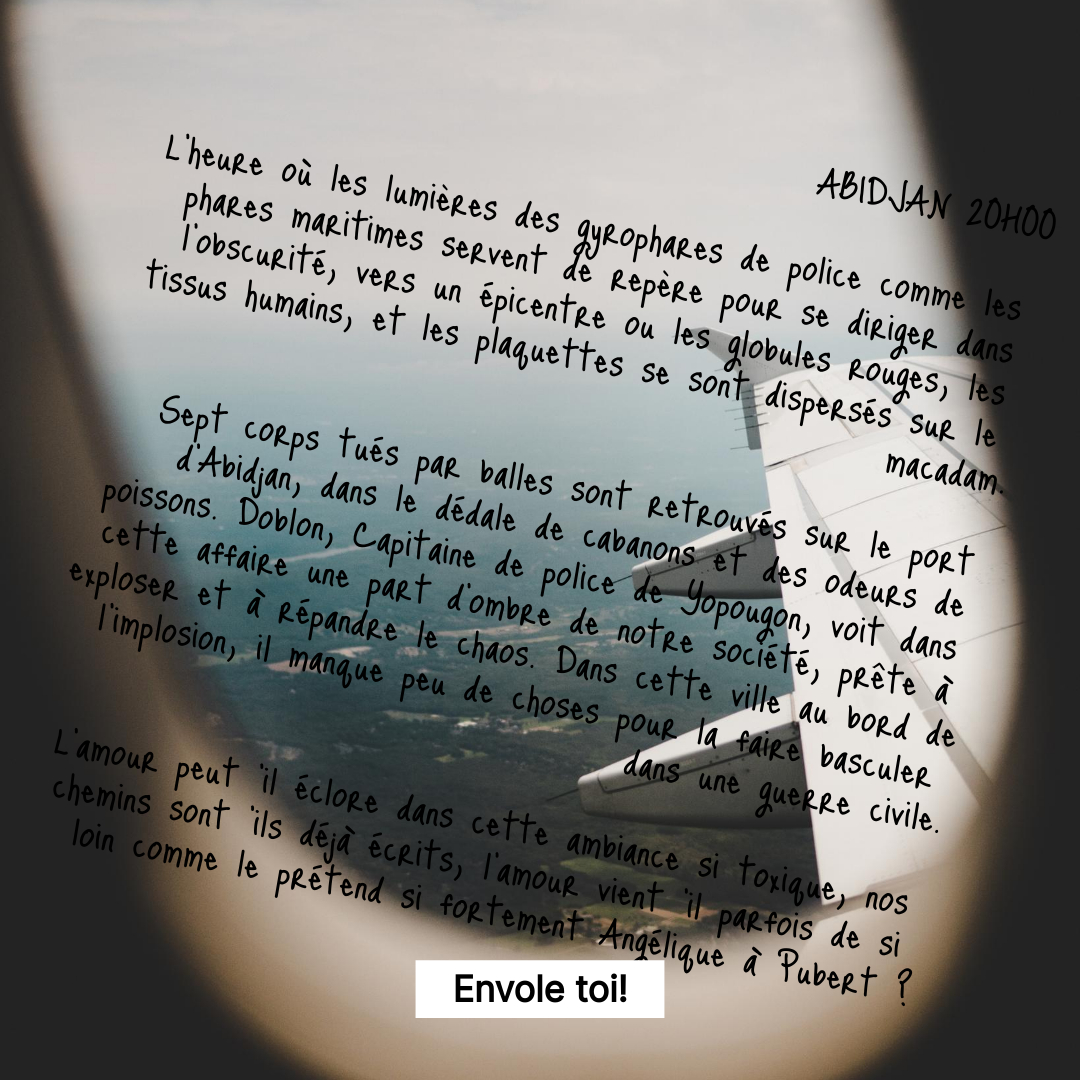 ABIDJAN 20H00
L'heure où les lumières des gyrophares de police comme les
phares maritimes servent de repère pour se diriger dans
l'obscurité, vers un épicentre ou les globules rouges, les
tissus humains, et les plaquettes se sont dispersés sur le
macadam.
Sept corps tués par balles sont retrouvés sur le port
d'Abidjan, dans le dédale de cabanons et des odeurs de
poissons. Doblon, Capitaine de police de Yopougon, voit dans
cette affaire une part d'ombre de notre société, prête à
exploser et à répandre le chaos. Dans cette ville au bord de
l'implosion, il manque peu de choses pour la faire basculer
dans une guerre civile.
L'amour peut 'il éclore dans cette ambiance si toxique, nos
chemins sont 'ils déjà écrits, l'amour vient 'il parfois de si
loin comme le prétend si fortement Angélique à Pubert ?
Envole toi!